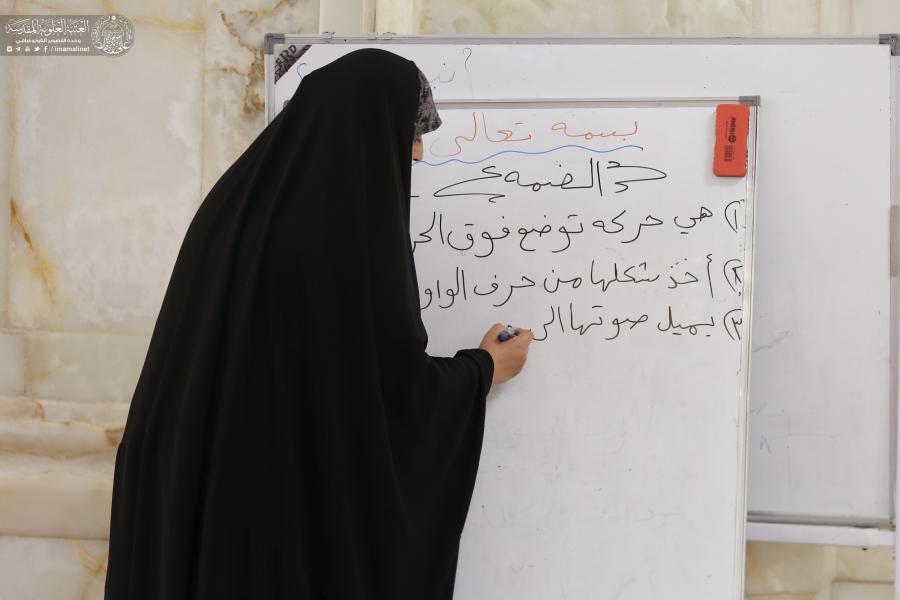 العتبة العلوية المقدسة
وحدة التصوير الفوتوغرافي
/ imamalinet
بسمه تعالى
الضمه
١) هي حركه توضع فوق الحر
٢) أخذ شكلها من حرف الواو
٣) يميل صوتها الى